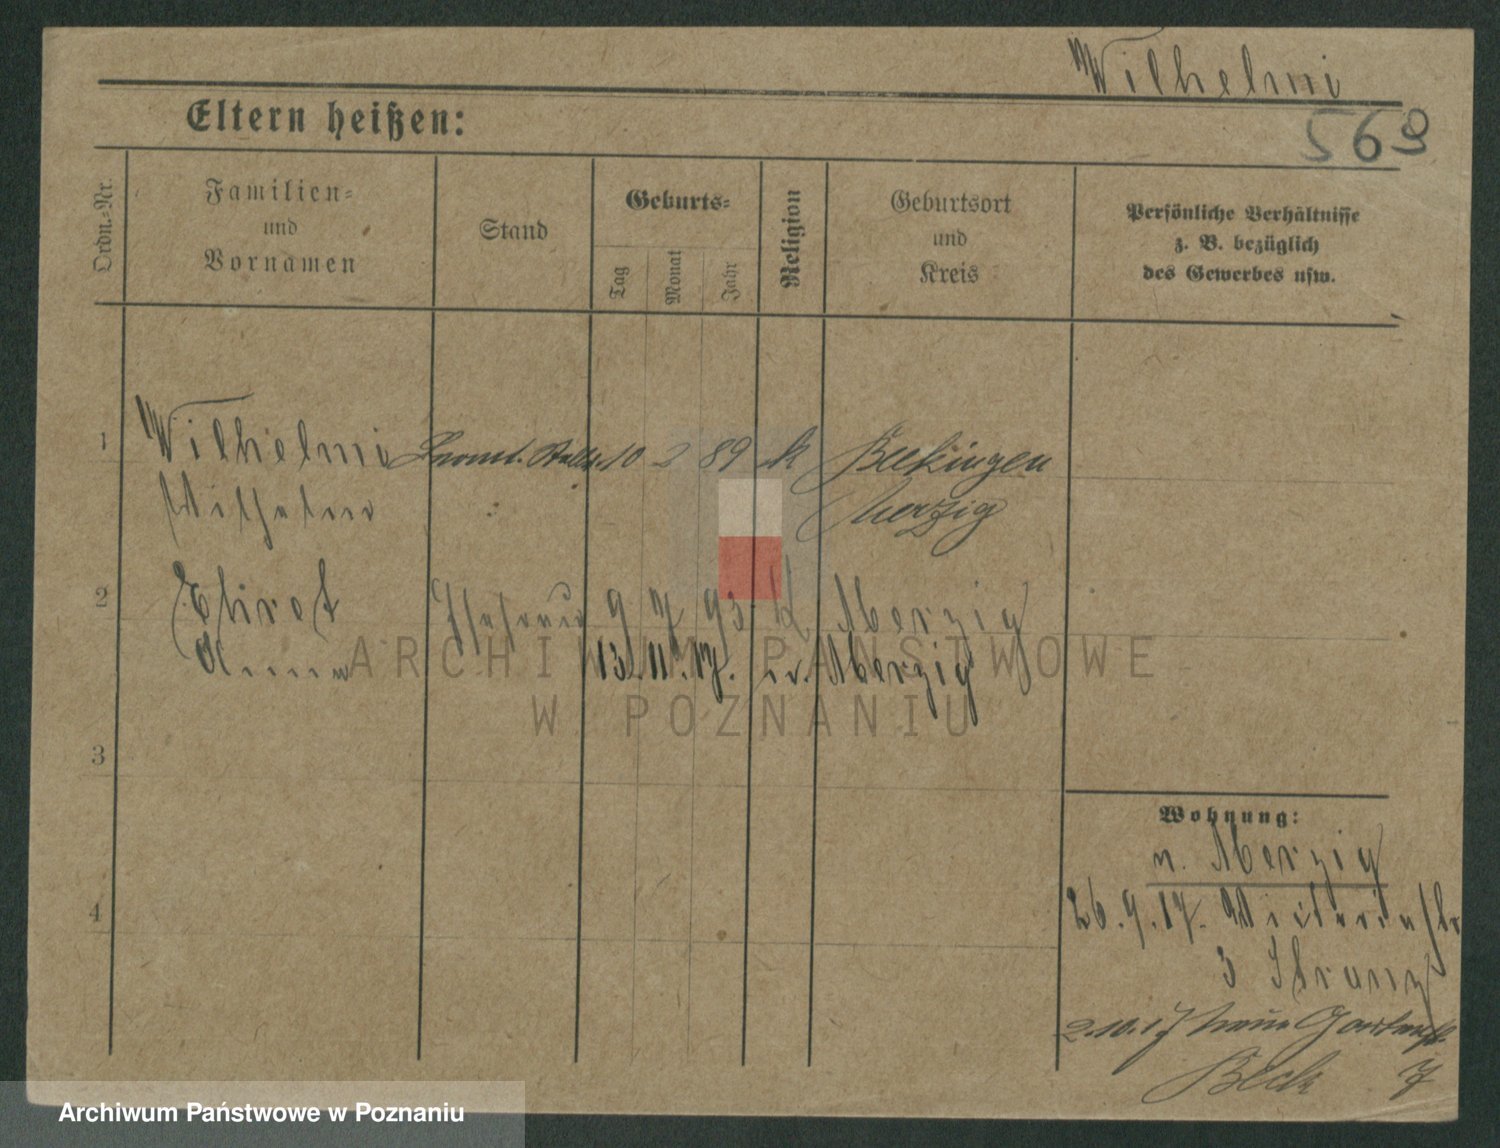 Wilhelmi
569
Eltern heißen:
Ordn.-Nr.
Familien-
und
Vornamen
Stand
Geburts-
Tag
Monat
Jahr
Religion
Geburtsort
und
Kreis
Persönliche Verhältnisse
z. B. bezüglich
des Gewerbes usw.
1 Wilhelmi 10 2 89 k Beckingen
Wilhelm Merzig
2 Ehret Ehefrau 9 7 93. k Merzig
Anna 13. 11. 17. n. Merzig
3
4
Wohnung:
n. Merzig
26.9.17. Victoriastr
3
2.10.17 Gartenstr.
Beck 7
ARCHIWUM PAŃSTWOWE
W POZNANIU
Archiwum Państwowe w Poznaniu